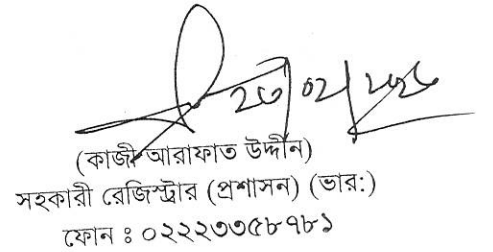 (কাজী আরাফাত উদ্দীন)
সহকারী রেজিস্ট্রার (প্রশাসন) (ভার:)
ফোন ঃ ০২২২৩৩৫৮৭৮১